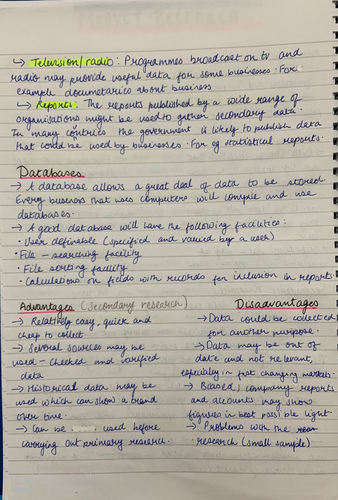 ↳ Television/radio: Programmes broadcast on tv and
radio may provide useful data for some businesses. For
example documetaries about business
↳ Reports: The reports published by a wide range of
organisations might be used to gather secondary data.
In many contries the government is likely to publish data
that could be used by businesses. For eg statistical reports.
Databases
→ A database allows a great deal of data to be stored.
Every business that uses computers will compile and use
databases.
→ A good database will have the following facilities:
• User definable (specified and varied by a user)
• File - searching facility
• File sorting facility
• Calculations on fields with records for inclusion in reports.
Advantages (secondary research)
→ Relatively easy, quick and
cheap to collect
→ Several sources may be
used - checked and verified
data
→ Historical data may be
used which can show a trend
over time.
→ Can be used before
carrying out primary research.
Disadvantages
→ Data could be collected
for another purpose.
→ Data may be out of
date and not relevant,
especially in fast changing markets.
→ Biased, company reports
and accounts may show
figures in best possible light
→ Problems with the
research (small sample)